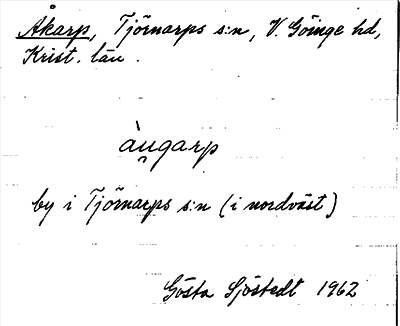 Åkarp, Tjörnarps s:n, V. Göinge hd,
Krist. län.
àu̯garp
by i Tjörnarps s:n (i nordväst)
Gösta Sjöstedt 1962